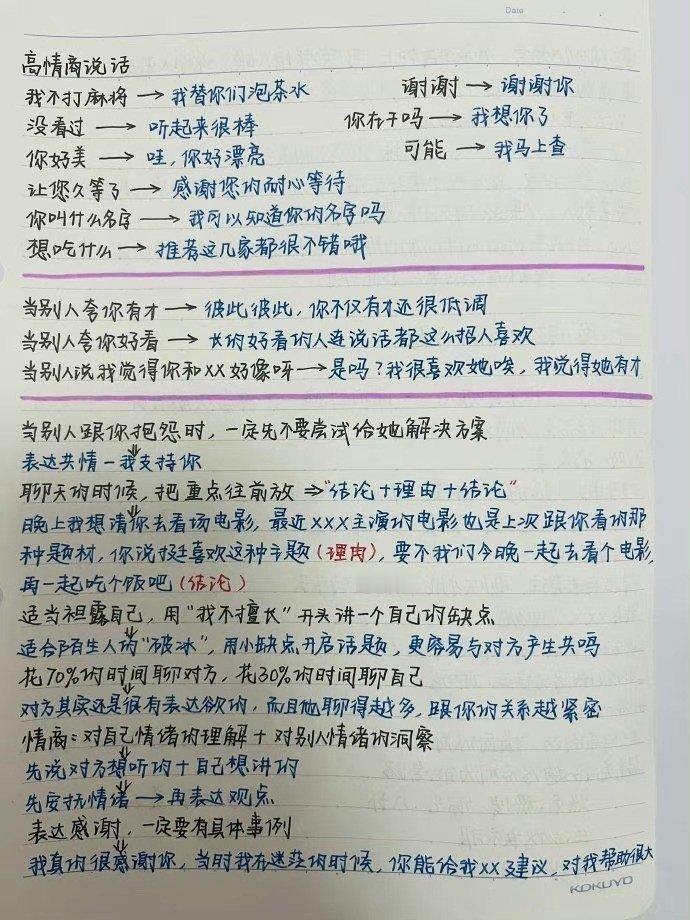 Date
高情商说话
我不打麻将 → 我替你们泡茶水 谢谢 → 谢谢你
没看过 → 听起来很棒 你在干吗 → 我想你了
你好美 → 哇,你好漂亮 可能 → 我马上查
让您久等了 → 感谢您的耐心等待
你叫什么名字 → 我可以知道你的名字吗
想吃什么 → 推荐这几家都很不错哦
当别人夸你有才 → 彼此彼此,你不仅有才还很低调
当别人夸你好看 → 长的好看的人连说话都这么招人喜欢
当别人说我觉得你和XX好像呀 → 是吗?我很喜欢她唉,我觉得她有才
当别人跟你抱怨时,一定先不要尝试给她解决方案
表达共情-我支持你
聊天的时候,把重点往前放 ⇒“结论+理由+结论”
晚上我想请你去看场电影,最近XXX主演的电影也是上次跟你看的那
种题材,你说挺喜欢这种主题(理由),要不我们今晚一起去看个电影,
再一起吃个饭吧(结论)
适当袒露自己,用“我不擅长”开头讲一个自己的缺点
适合陌生人的“破冰”,用小缺点开启话题,更容易与对方产生共鸣
花70%的时间聊对方,花30%的时间聊自己
对方其实还是很有表达欲的,而且他聊得越多,跟你的关系越紧密
情商:对自己情绪的理解+对别人情绪的洞察
先说对方想听的+自己想讲的
先安抚情绪 → 再表达观点
表达感谢,一定要有具体事例
我真的很感谢你,当时我在迷茫的时候,你能给我XX建议,对我帮助很大
KOKUYO